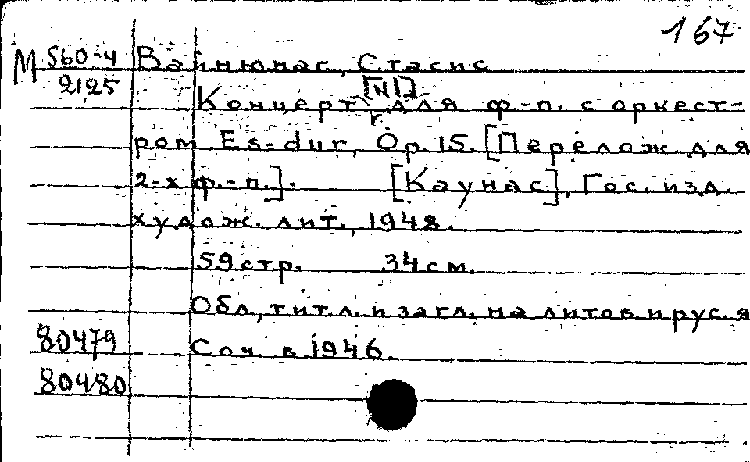 167
М 560-4 Вайнюнас, Стасис
2125 [№1]
Концерт для ф-п. с оркест-
ром Es-dur, Op. 15. [Перелож. для
2-х ф.-п.]. [Каунас], Гос. изд.
худож. лит., 1948.
59 стр. 34 см.
Обл., тит. л. и загл. на литов. и рус. я
80479 Соч. в 1946.
80480